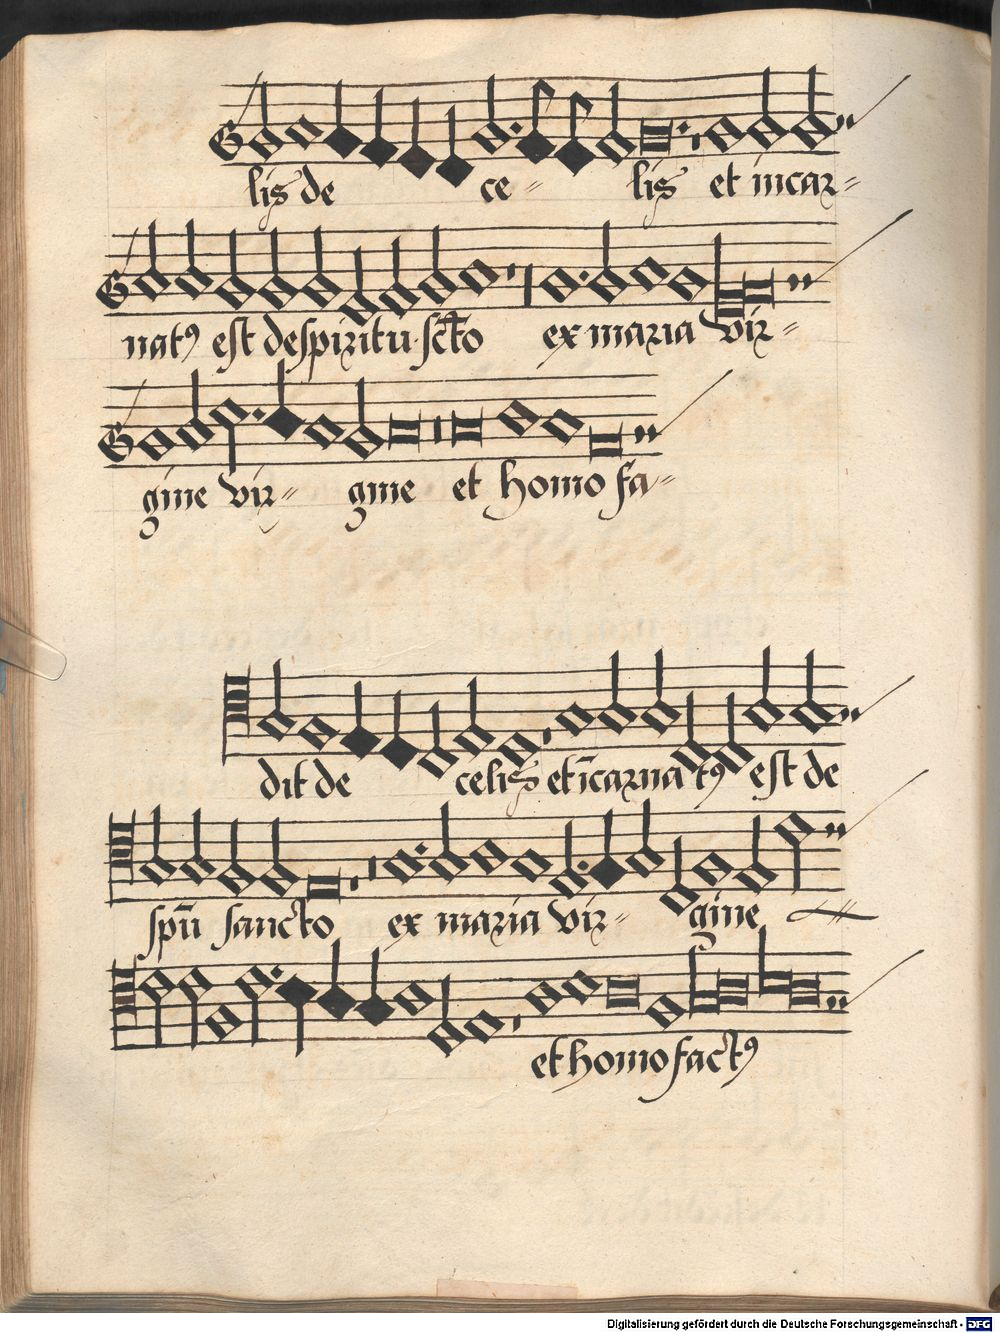 lis de ce= lis et incar=
natꝰ est de spiritu scto ex maria vir=
gine vir= gine et homo fa=
dit de celis et īcarna tꝰ est de
spū sancto ex maria vir= gine
et homo factꝰ
Digitalisierung gefördert durch die Deutsche Forschungsgemeinschaft - DFG